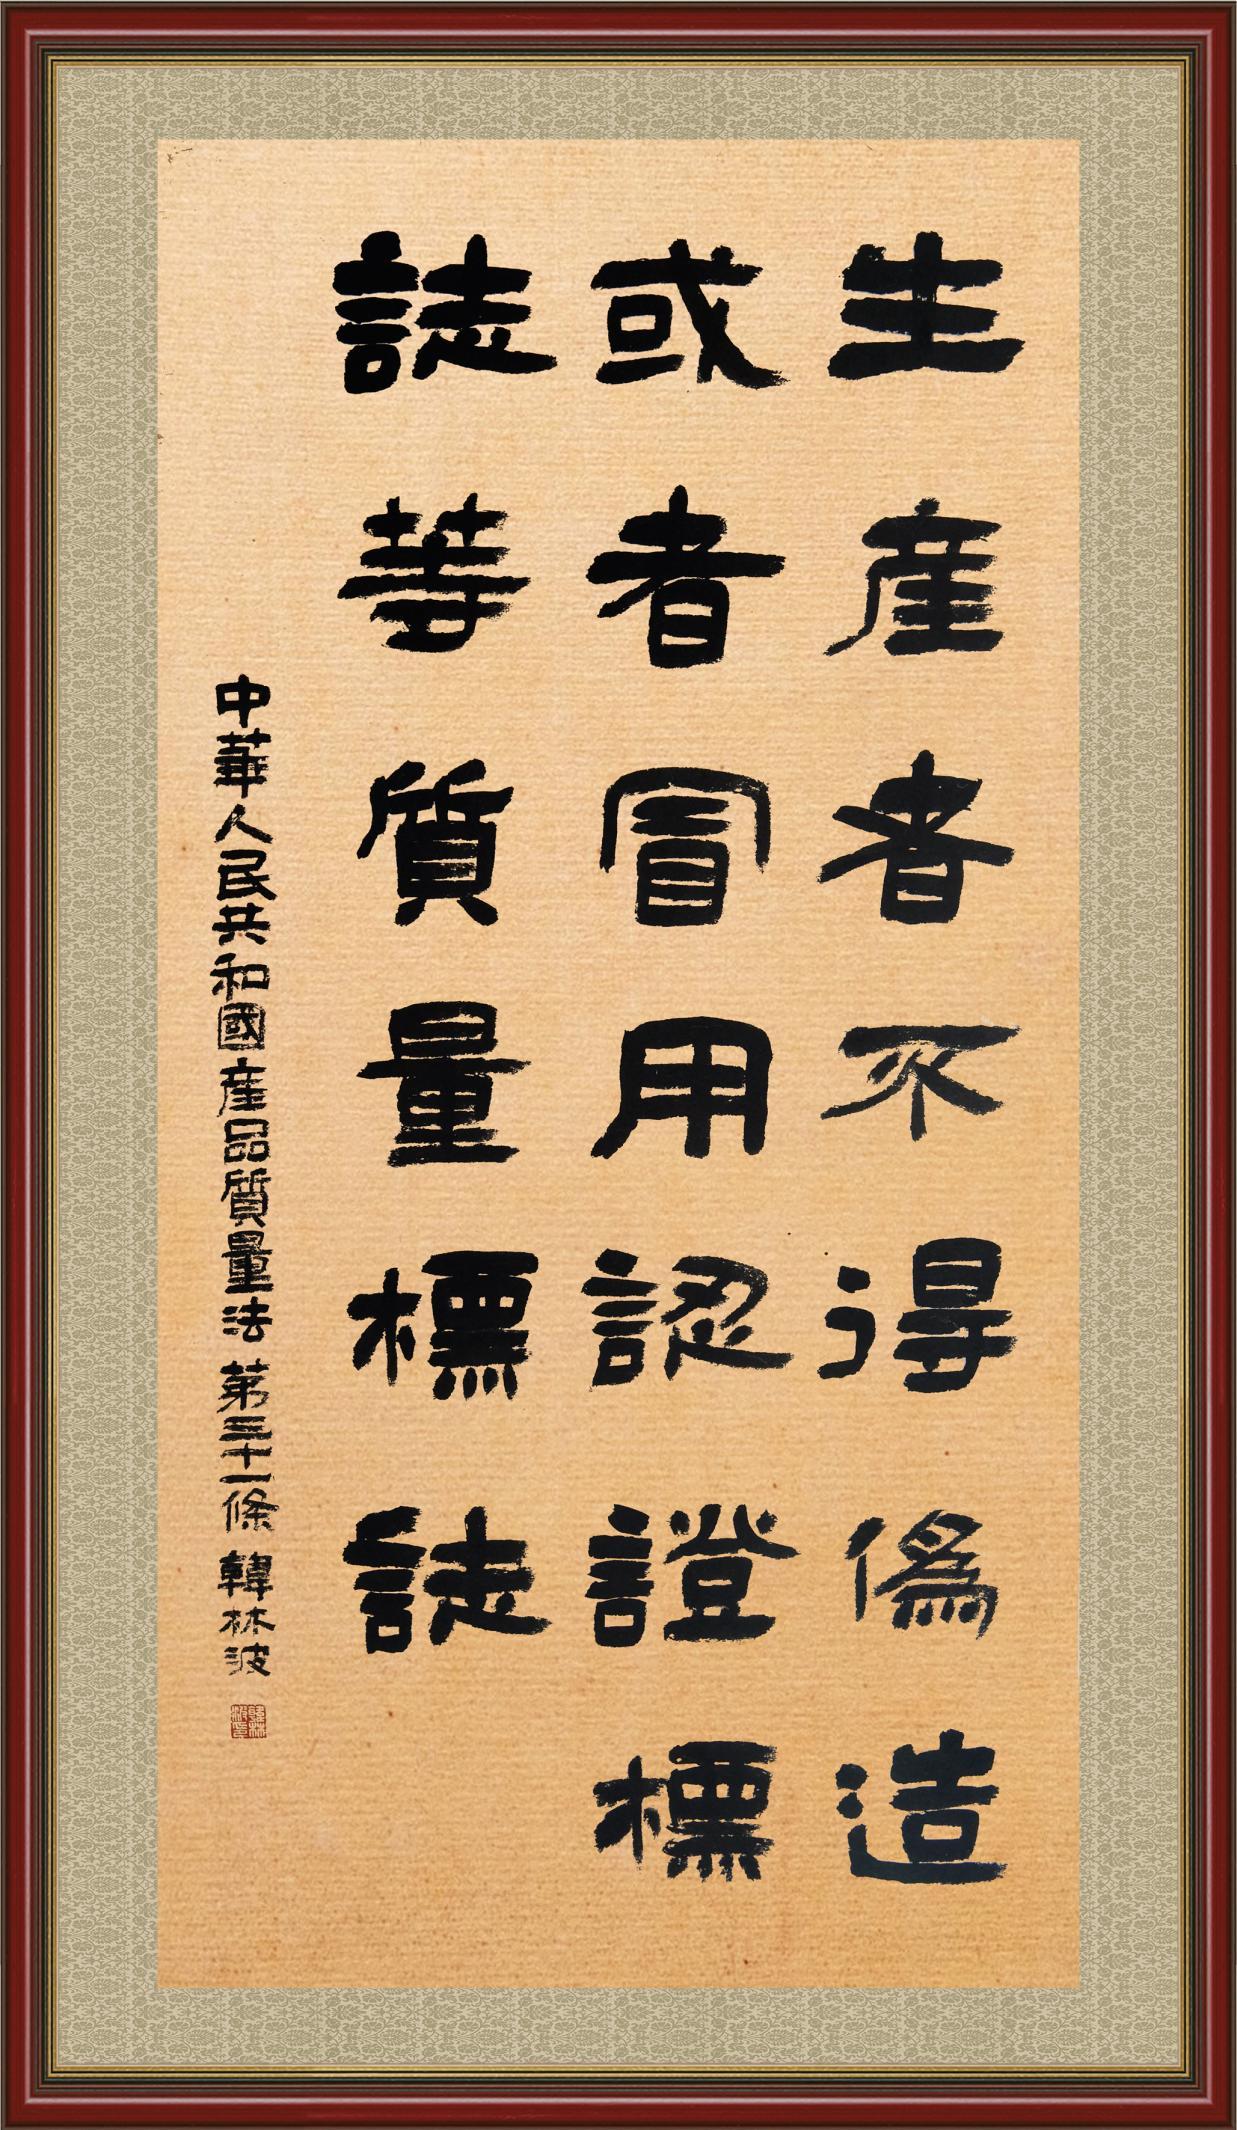 生產者不得偽造
或者冒用認證標
誌等質量標誌
中華人民共和國產品質量法 第三十一條 韓林波
韓林波印